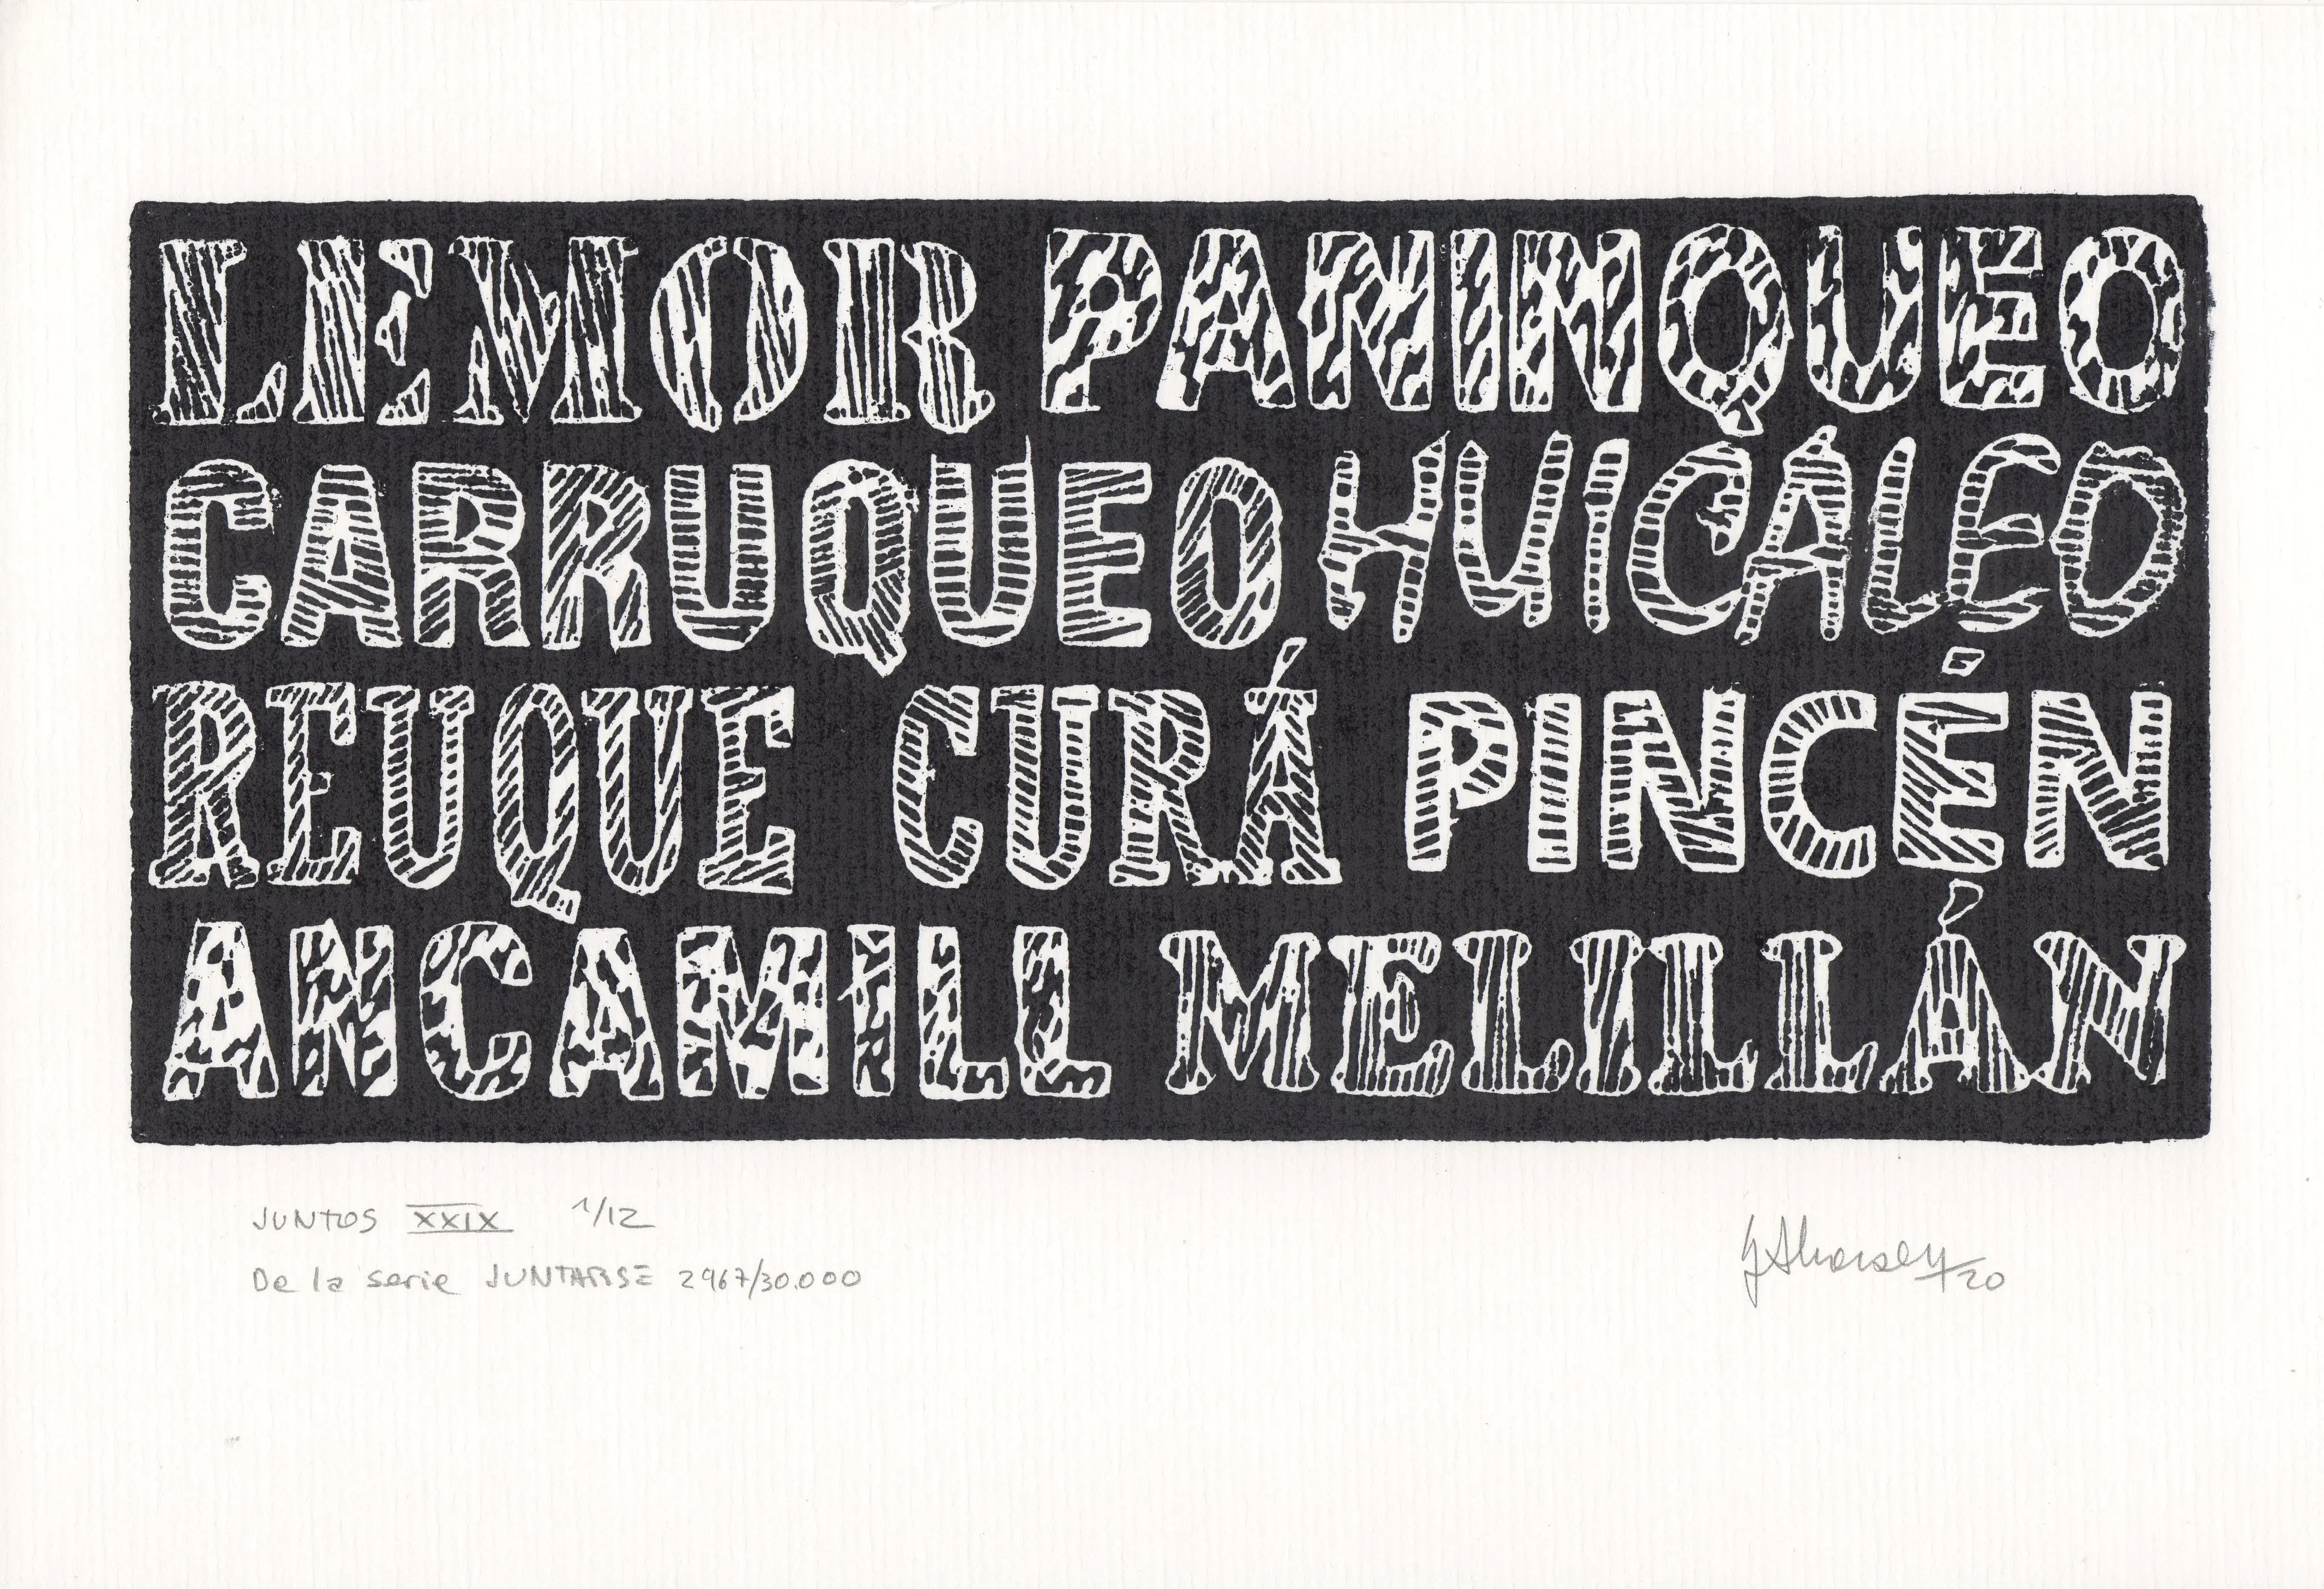 LEMOR PANINQUEO
CARRUQUEO HUICALEO
REUQUE CURÁ PINCÉN
ANCAMILL MELILLÁN
JUNTOS XXIX 1/12
De la serie JUNTARSE 2967/30.000
20